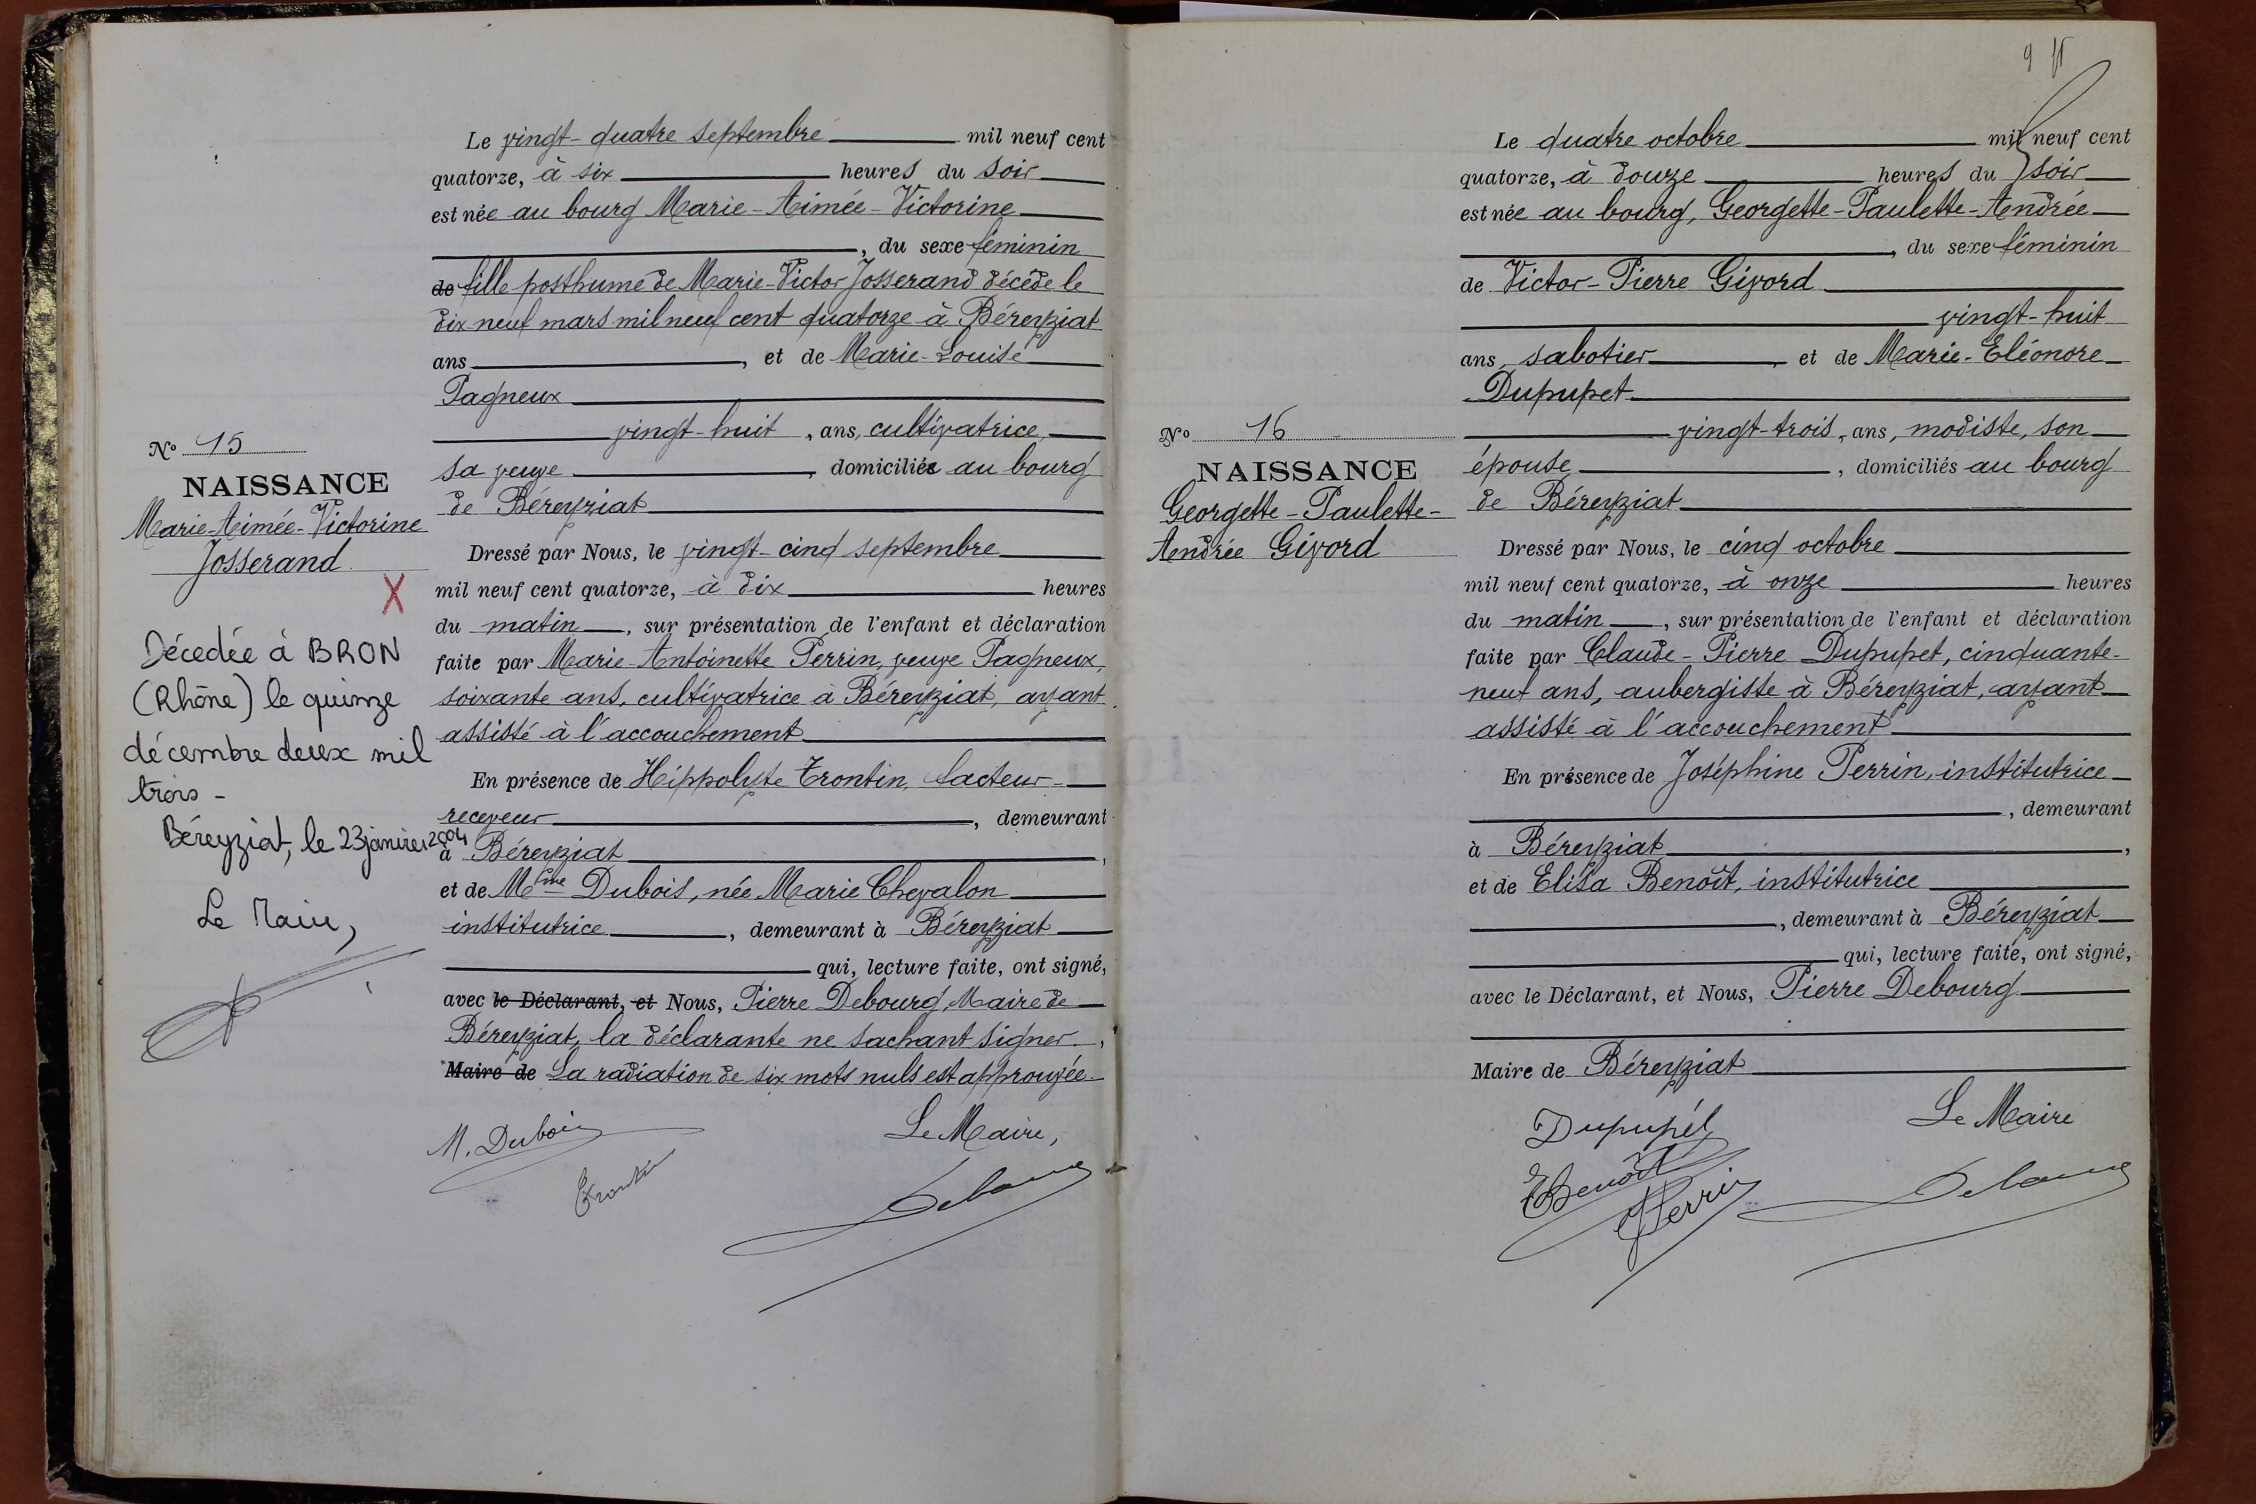 Le vingt-quatre septembre mil neuf cent
quatorze, à six heures du soir
est née au bourg Marie-Aimée-Victorine
, du sexe féminin
de fille posthume de Marie-Victor Josserand décédé le
dix neuf mars mil neuf cent quatorze à Béreyziat
ans, et de Marie-Louise
Pagneux
vingt-huit, ans, cultivatrice,
sa veuve, domiciliée au bourg
de Béreyziat
Dressé par Nous, le vingt-cinq septembre
mil neuf cent quatorze, à dix heures
du matin, sur présentation de l'enfant et déclaration
faite par Marie-Antoinette Perrin, veuve Pagneux,
soixante ans, cultivatrice à Béreyziat, ayant
assisté à l'accouchement
En présence de Hippolyte Trontin, facteur-
receveur, demeurant
à Béreyziat,
et de Mme Dubois, née Marie Chevalon
institutrice, demeurant à Béreyziat
qui, lecture faite, ont signé,
avec le Déclarant, et Nous, Pierre Debourg, Maire de
Béreyziat, la déclarante ne sachant signer.,
Maire de La radiation de six mots nuls est approuvée.
M. Dubois
Le Maire,
Trontin
Debourg
No 15
NAISSANCE
Marie-Aimée-Victorine
Josserand
X
Décédée à BRON
(Rhône) le quinze
décembre deux mil
trois -
Béreyziat, le 23 janvier 2004
Le Maire,
9
Le quatre octobre mil neuf cent
quatorze, à douze heures du soir
est née au bourg, Georgette-Paulette-Andrée
, du sexe féminin
de Victor-Pierre Givord
vingt-huit
ans, sabotier, et de Marie-Eléonore
Dupupet
vingt-trois, ans, modiste, son
épouse, domiciliés au bourg
de Béreyziat
Dressé par Nous, le cinq octobre
mil neuf cent quatorze, à onze heures
du matin, sur présentation de l'enfant et déclaration
faite par Claude-Pierre Dupupet, cinquante-
neuf ans, aubergiste à Béreyziat, ayant
assisté à l'accouchement
En présence de Joséphine Perrin, institutrice
, demeurant
à Béreyziat,
et de Elisa Benoît, institutrice
, demeurant à Béreyziat
qui, lecture faite, ont signé,
avec le Déclarant, et Nous, Pierre Debourg
Maire de Béreyziat
Dupupet
Le Maire
EBenoît
JPerrin
Debourg
No 16
NAISSANCE
Georgette-Paulette-
Andrée Givord